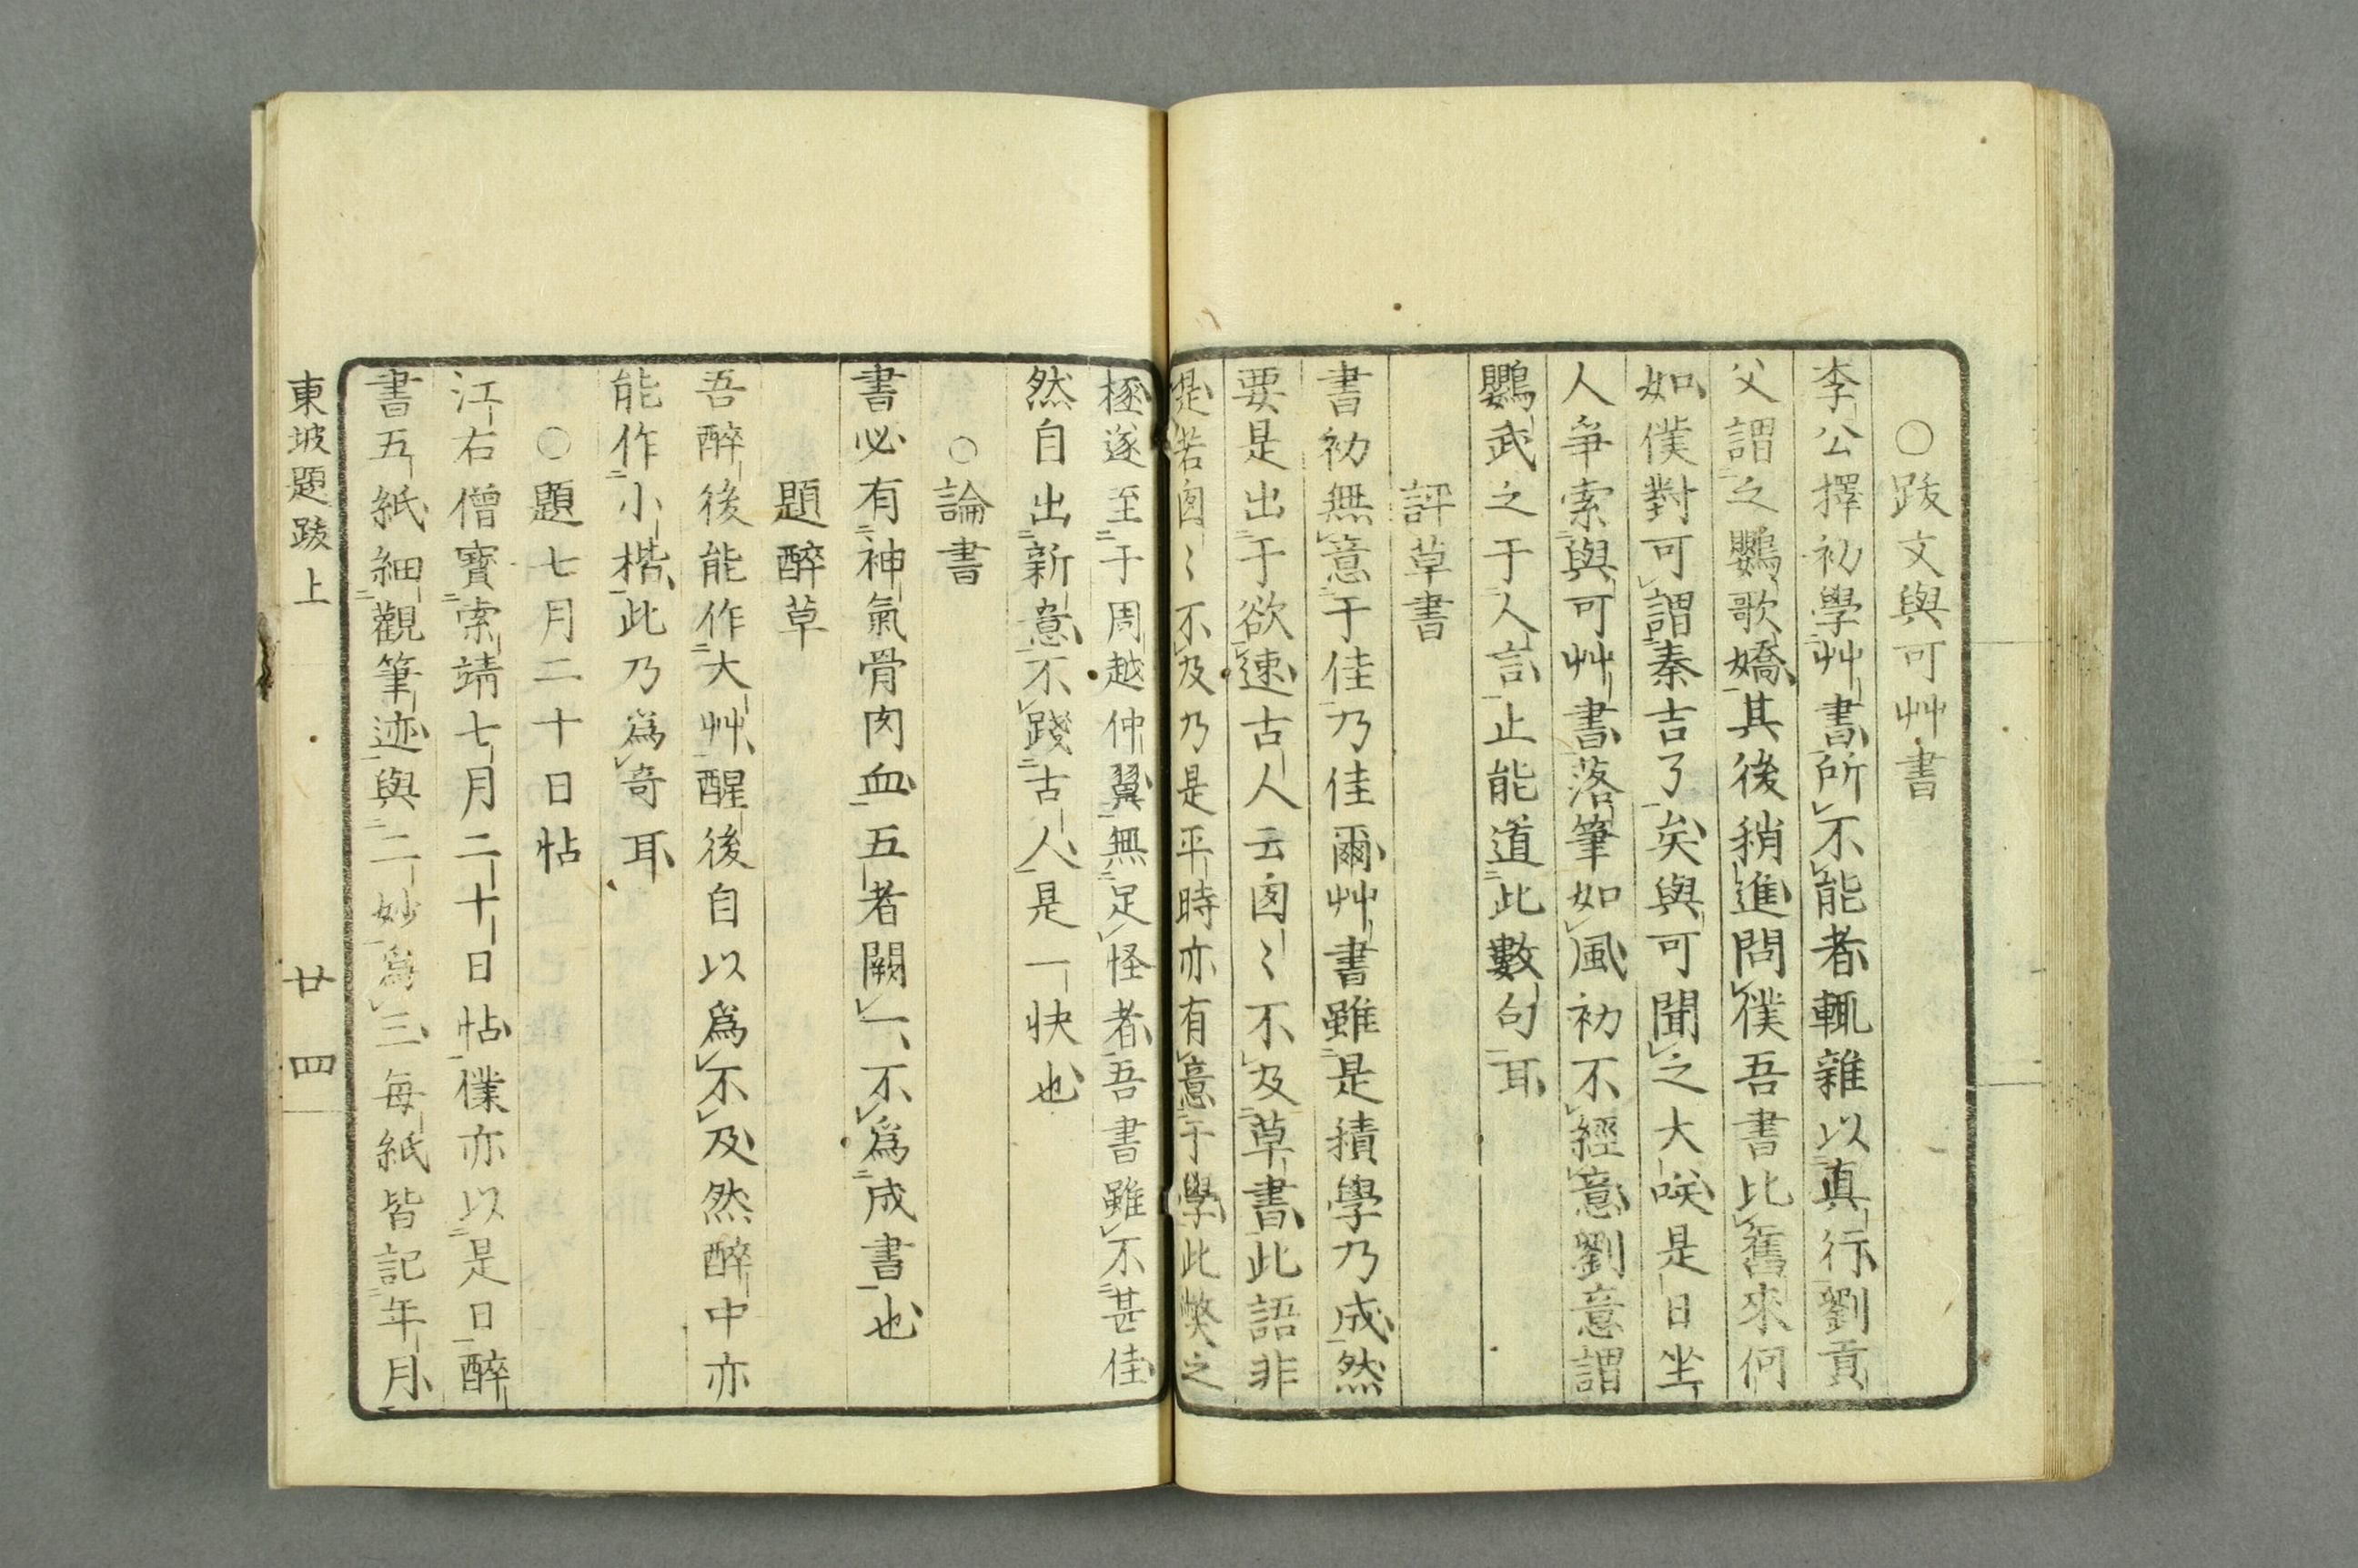 ○跋文與可艸書
李公擇初學艸書所不能者輒雜以真行劉貢
父謂之鸚歌嬌其後稍進問僕吾書比舊來何
如僕對可謂秦吉了矣與可聞之大咲是日坐
人爭索與可艸書落筆如風初不經意劉意謂
鸚武之于人言止能道此數句耳
評草書
書初無意于佳乃佳爾艸書雖是積學乃成然
要是出于欲速古人云匆〻不及草書此語非
是若匆〻不及乃是平時亦有意于學此弊之
極遂至于周越仲翼無足怪者吾書雖不甚佳
然自出新意不踐古人是一快也
○論書
書必有神氣骨肉血五者闕一不爲成書也
題醉草
吾醉後能作大艸醒後自以爲不及然醉中亦
能作小楷此乃爲奇耳
○題七月二十日帖
江右僧寶索靖七月二十日帖僕亦以是日醉
書五紙細觀筆迹與二妙爲三每紙皆記年月
東坡題跋上 廿四